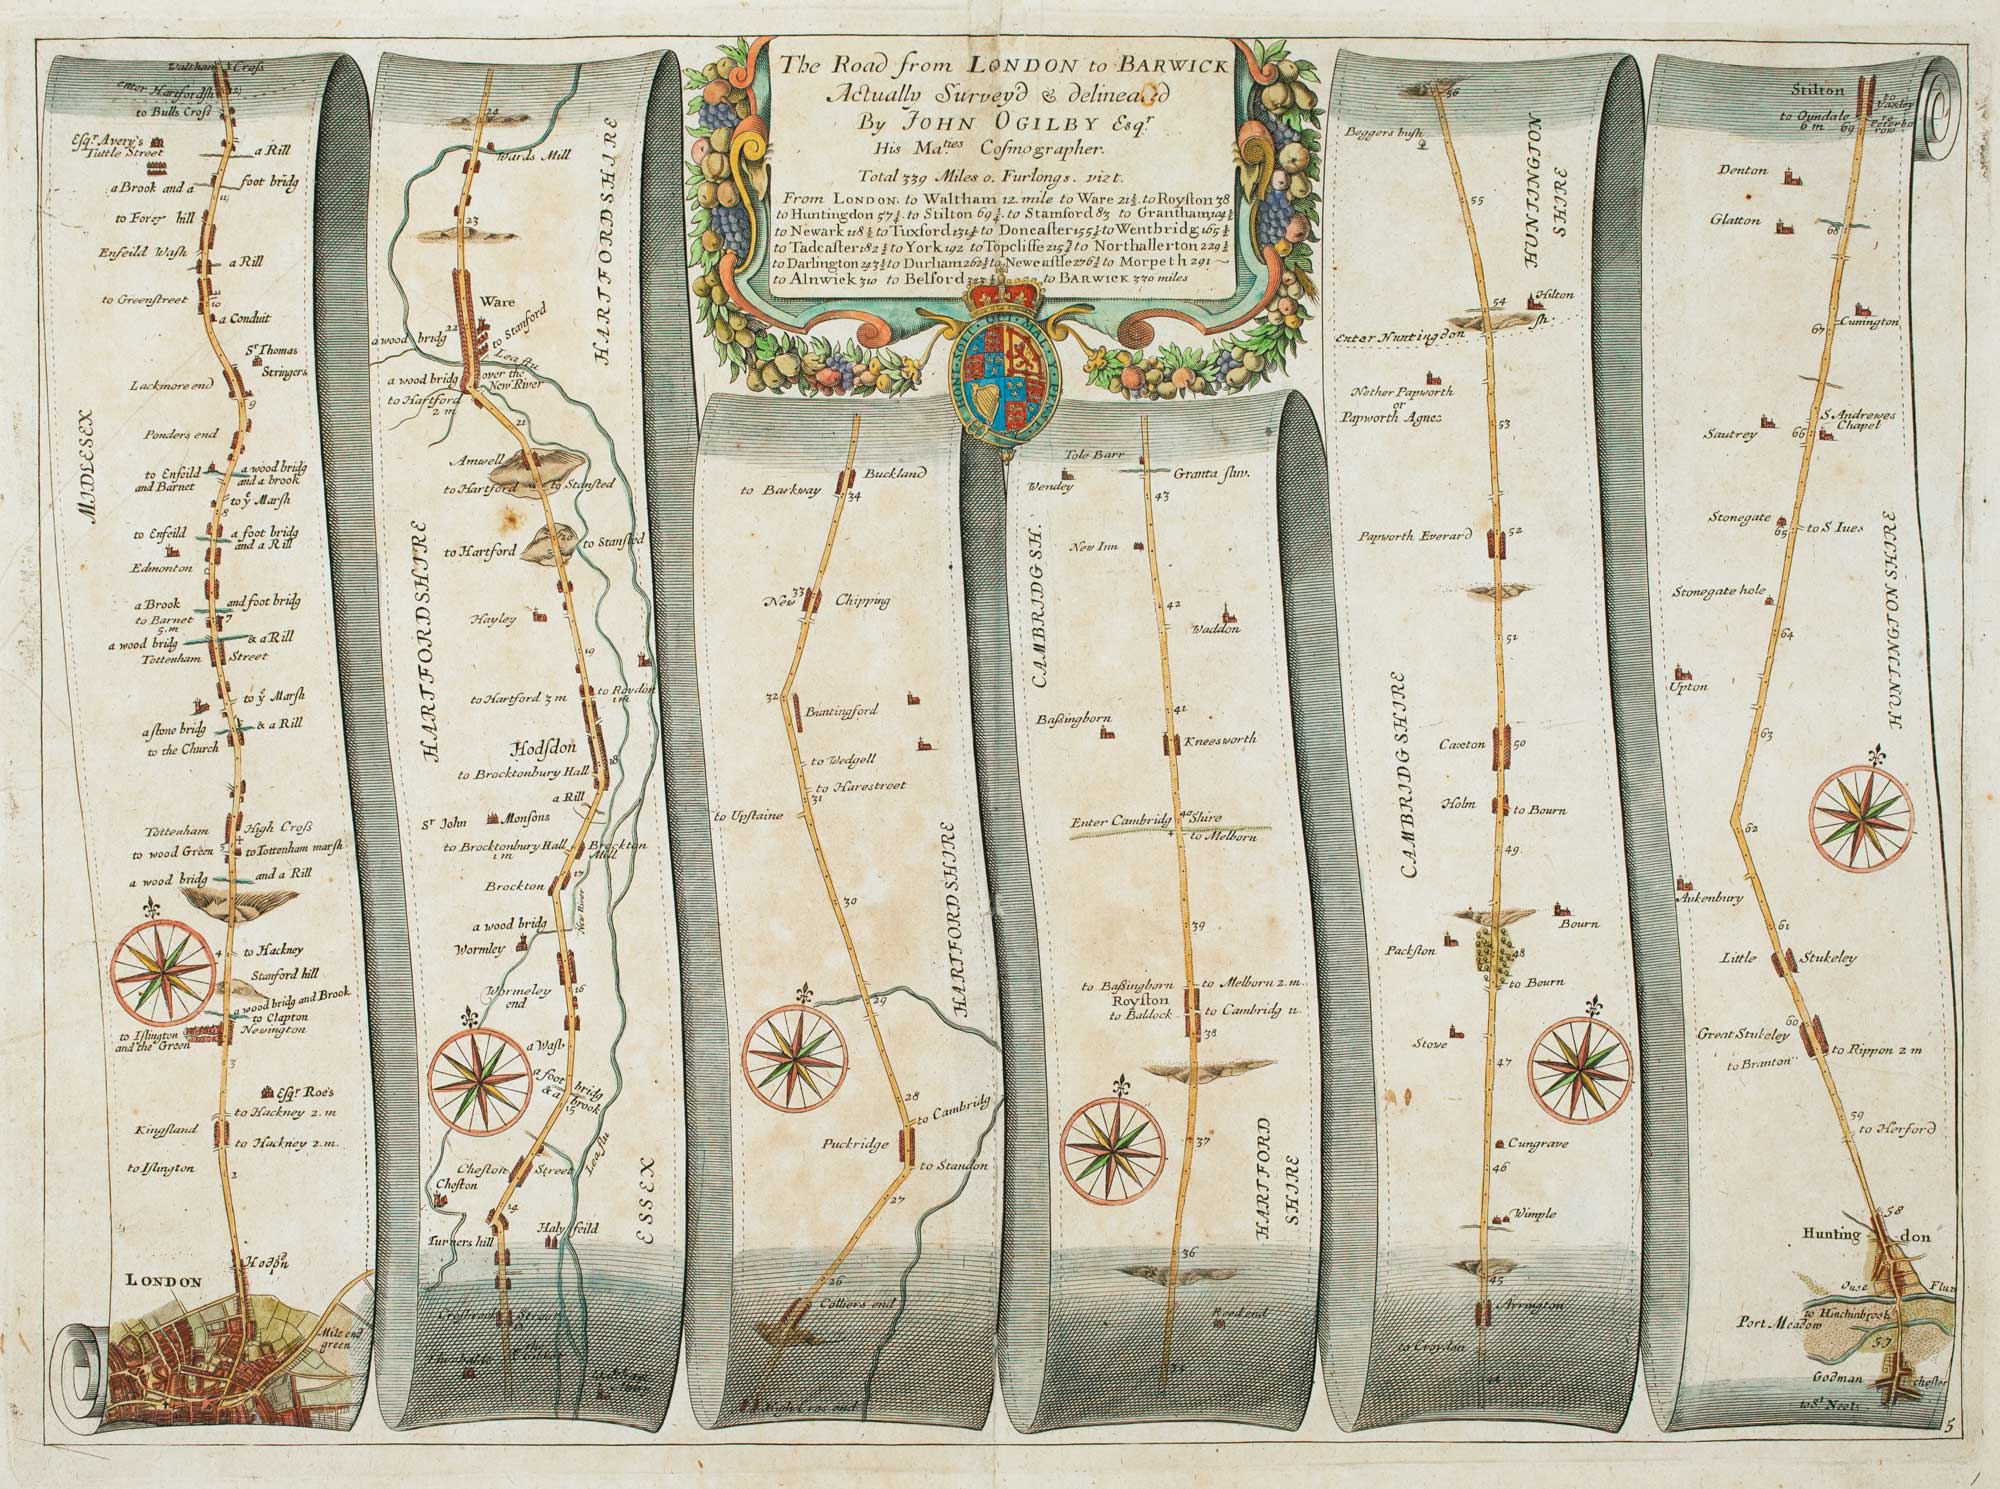 The Road from LONDON to BARWICK
Actually Survey'd & delineated
By JOHN OGILBY Esqr.
His Ma.ties Cosmographer.
Total 339 Miles 0. Furlongs. vizt.
From LONDON. to Waltham 12 mile to Ware 21½. to Royston 38
to Huntingdon 57½. to Stilton 69¼. to Stamford 83 to Grantham 104½
to Newark 118½ to Tuxford 131½ to Doncaster 155½ to Wentbridg 165½
to Tadcaster 182½ to York 192 to Topcliffe 215½ to Northallerton 229½
to Darlington 243½ to Durham 262½ to Newcastle 276½ to Morpeth 291
to Alnwick 310 to Belford to BARWICK 339 miles
HONI SOIT QUI MAL Y PENSE
Waltham Cross
enter Hartfordsh
to Bulls Cross
Esqr. Avery's
Tuttle Street
a Rill
a Brook and a foot bridg
11
to Forty hill
Enfeild Wash
a Rill
to Greenstreet
10
a Conduit
Sr. Thomas
Stringers
Lackmore end
9
Ponders end
to Enfeild
and Barnet
a wood bridg
and a brook
to ye Marsh
8
to Enfeild
a foot bridg
and a Rill
Edmonton
a Brook and foot bridg
to Barnet
5.m
7
a wood bridg & a Rill
Tottenham Street
to ye Marsh
a stone bridg & a Rill
to the Church
Tottenham High Cross
to wood Green
5
to Tottenham marsh
a wood bridg and a Rill
4
to Hackney
Stanford hill
a wood bridg and Brook
to Clapton
Newington
to Islington
and the Green
3
Esqr Roe's
to Hackney 2.m
Kingsland
to Hackney 2.m.
to Islington
2
Hodsdn
LONDON
Mile end
green
MIDLESEX
24
Wards Mill
23
Ware
22
to Stanford
a wood bridg
Lea flu
a wood bridg
over the
New River
to Hartford
2 m
21
Amwell
to Hartford
to Stansted
20
to Hartford
to Stansted
Hayley
19
to Hartford 3 m
to Roydon
1m
Hodsdon
to Brocktonbury Hall
18
a Rill
Sr John Monsons
to Brocktonbury Hall
1 m
Brockton
Mill
17
Brockton
a wood bridg
New River
Wormley
Wormeley
end
16
a Wash
a foot bridg
& a brook
15
Cheston Street
Lea flu
Cheston
14
Turners hill
Halyfeild
HARTFORDSHIRE
HARTFORDSHIRE
ESSEX
Buckland
to Barkway
34
33
New Chipping
32
Buntingford
to Wedgell
to Harestreet
31
to Upstaine
30
29
28
to Cambridg
Puckridge
to Standon
27
26
Colliers end
High Cros end
HARTFORDSHIRE
Tole Barr
Granta fluv.
Wendey
43
New Inn
42
Waddon
41
Bassingborn
Kneesworth
40
Enter Cambridg Shire
to Melborn
39
to Bassingborn
to Melborn 2.m.
Royston
to Baldock
to Cambridg 11.
38
37
36
Reed end
35
CAMBRIDGSH.
HARTFORD
SHIRE
56
Beggers bush
55
54
Hilton
Enter Huntingdon sh:
Nether Papworth
or
Papworth Agnes
53
Papworth Everard
52
51
Caxton
50
Holm
to Bourn
49
Bourn
Packston
48
to Bourn
Stowe
47
Cungrave
46
Wimple
45
Arrington
to Croydon
44
HUNTINGTON
SHIRE
CAMBRIDGSHIRE
Stilton
to Yaxley
to Oundale
6 m
69
to Peterbo
row
Denton
Glatton
68
Cunington
67
St Andrewes
Chapel
Sautrey
66
Stonegate
65
to S Iues
Stonegate hole
64
Upton
63
62
Aukenbury
61
Little Stukeley
60
Great Stukeley
to Rippon 2 m
to Branton
59
to Herford
58
Huntingdon
Ouse Fluv
to Hinchinbrook
Port Meadow
57
Godmanchester
to St Neots
HUNTINGTONSHIRE
5